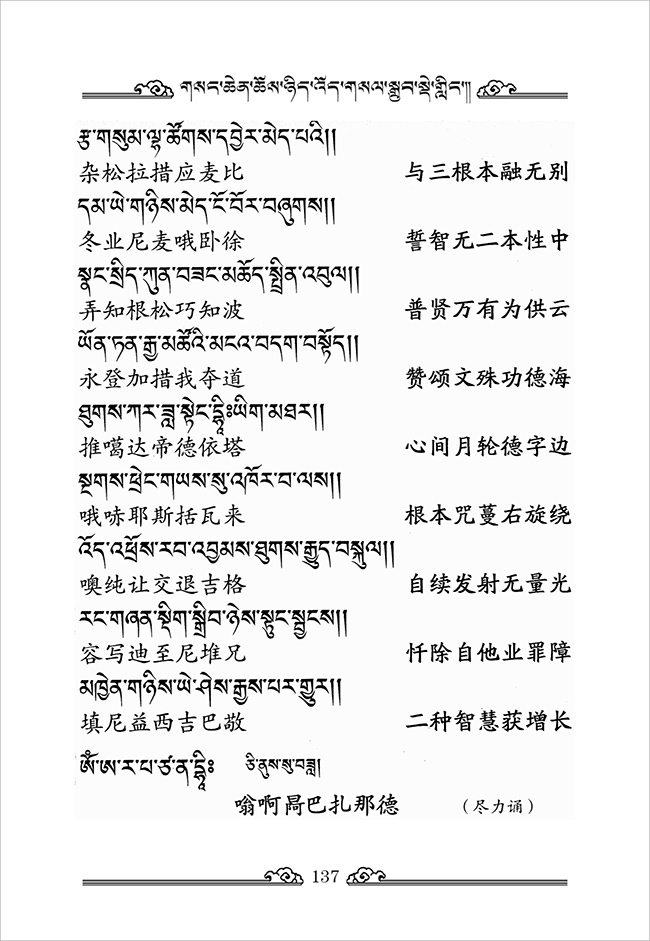 གསང་ཆེན་ཆོས་ཉིད་འོད་གསལ་སྒྲུབ་སྡེ་གླིང༌།།
རྩ་གསུམ་ལྷ་ཚོགས་དབྱེར་མེད་པའི།།
杂松拉措应麦比 与三根本融无别
དམ་ཡེ་གཉིས་མེད་ངོ་བོར་བཞུགས།།
冬业尼麦哦卧徐 誓智无二本性中
སྣང་སྲིད་ཀུན་བཟང་མཆོད་སྤྲིན་འབུལ།།
弄知根松巧知波 普贤万有为供云
ཡོན་ཏན་རྒྱ་མཚོའི་མངའ་བདག་བསྟོད།།
永登加措我夺道 赞颂文殊功德海
ཐུགས་ཀར་ཟླ་སྟེང་དྷཱིཿཡིག་མཐར།།
推噶达帝德依塔 心间月轮德字边
སྔགས་ཕྲེང་གཡས་སུ་འཁོར་བ་ལས།།
哦哧耶斯括瓦来 根本咒蔓右旋绕
འོད་འཕྲོས་རབ་འབྱམས་ཐུགས་རྒྱུད་བསྐུལ།།
噢纯让交退吉格 自续发射无量光
རང་གཞན་སྡིག་སྒྲིབ་ཉེས་སྟུང་སྦྱངས།།
容写迪至尼堆兄 忏除自他业罪障
མཁྱེན་གཉིས་ཡེ་ཤེས་རྒྱས་པར་གྱུར།།
填尼益西吉巴敬 二种智慧获增长
ༀ་ཨ་ར་པ་ཙ་ན་དྷཱིཿ ཅི་ནུས་སུ་བཟླ།
嗡啊咼巴扎那德 （尽力诵）
137